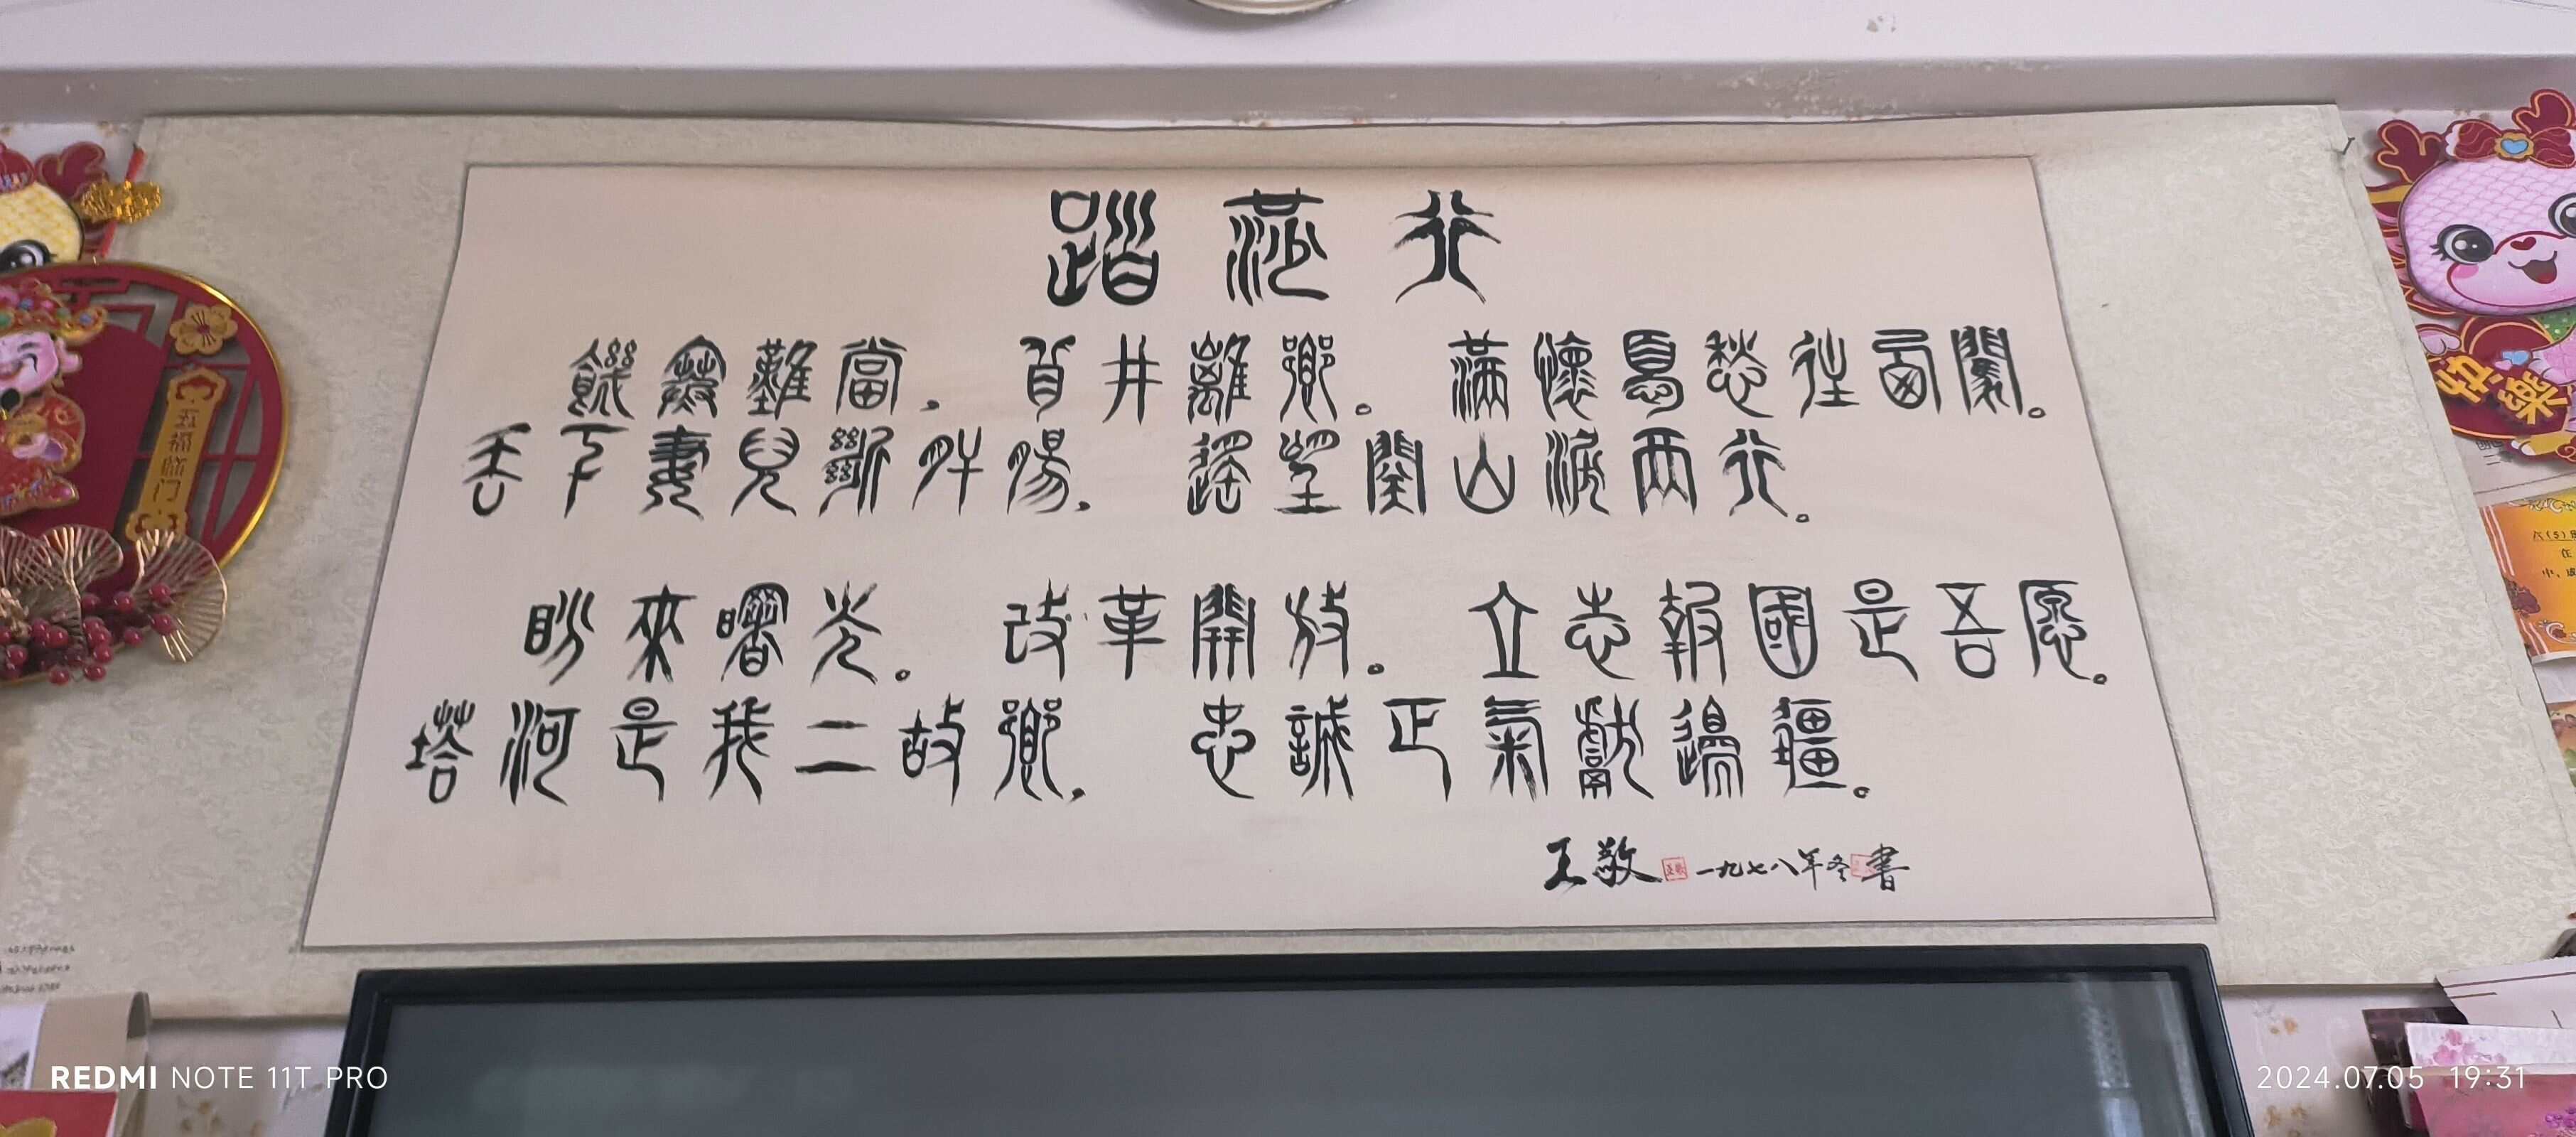 踏莎行
饑寒難當，背井離鄉。滿懷憂愁往西闖。
丟下妻兒斷肝腸，遙望關山淚兩行。
盼來曙光。改革開放。立志報國是吾愿。
塔河是我二故鄉，忠誠正氣獻邊疆。
王敬 一九七八年冬 書
五福臨门
REDMI NOTE 11T PRO
2024.07.05 19:31